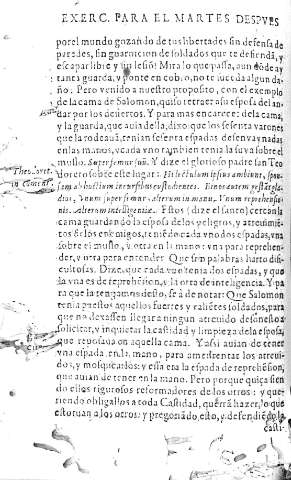 EXERC. PARA EL MARTES DESPVES
por el mundo gozando de tus libertades sin defensa de
paredes, sin guarnicion de soldados que te defienda, y
escapar libre y sin lesiō? Mira lo que passa, aun
tanta guarda, y ponte en cobro, no te suceda algun da-
ño. Pero veniendo a nuestro proposito, con el exemplo
de la cama de Salomon, quiso retraer a su esposa del an-
dar por los desiertos. Y para mas encarecer de la cama,
y la guarda, que auia de lla, dixo que los sesenta varones
que la rodeauā, teniā sesenta espadas desenvaynadas
en las manos, y cada vno tambien tenia la suya sobre el
muslo. Super femur suū. Y dize el glorioso padre san Teo
Theodoret.
in Coment.
doreto sobre este lugar: Hi lectulum ipsius ambiunt, spon-
sum ab hostium incursibus custodientes.
dios, Vnum super femur alterum in manu. Vnum reprehensio-
nis. Alterum intelligentiæ. Estos (dize el santo) cercan la
cama guardando la esposa de los peligros, y atreuimiē-
tos de los enemigos, teniēdo cada vno dos espadas, vna
sobre el muslo, y otra en la mano: vna para reprehen-
der, y otra para entender. Que son palabras harto di-
ficultosas. Dize, que cada vno tenia dos espadas, y que
la vna es de reprehēsion, y la otra de inteligencia. Y pa
ra que la tengamos desto, se à de notar: Que Salomon
tenia puestos aquellos fuertes y valiētes soldados, para
que no dexassen llegar a ningun atreuido deshonesto a
solicitar, y inquietar la castidad y limpieza de la esposa,
que reposaua en aquella cama. Y assi auian de tener
vna espada en la mano, para amedrentar los atreui-
dos, y mosquearlos: y essa era la espada de reprehēsion,
que auian de tener en la mano. Pero porque quiça sien
do ellos rigurosos reformadores de los otros: y que
riendo obligallos a toda Castidad, querrā hazer, lo que
estoruan a los otros: y pregonādo, esto, y defendiēdo la
casti-